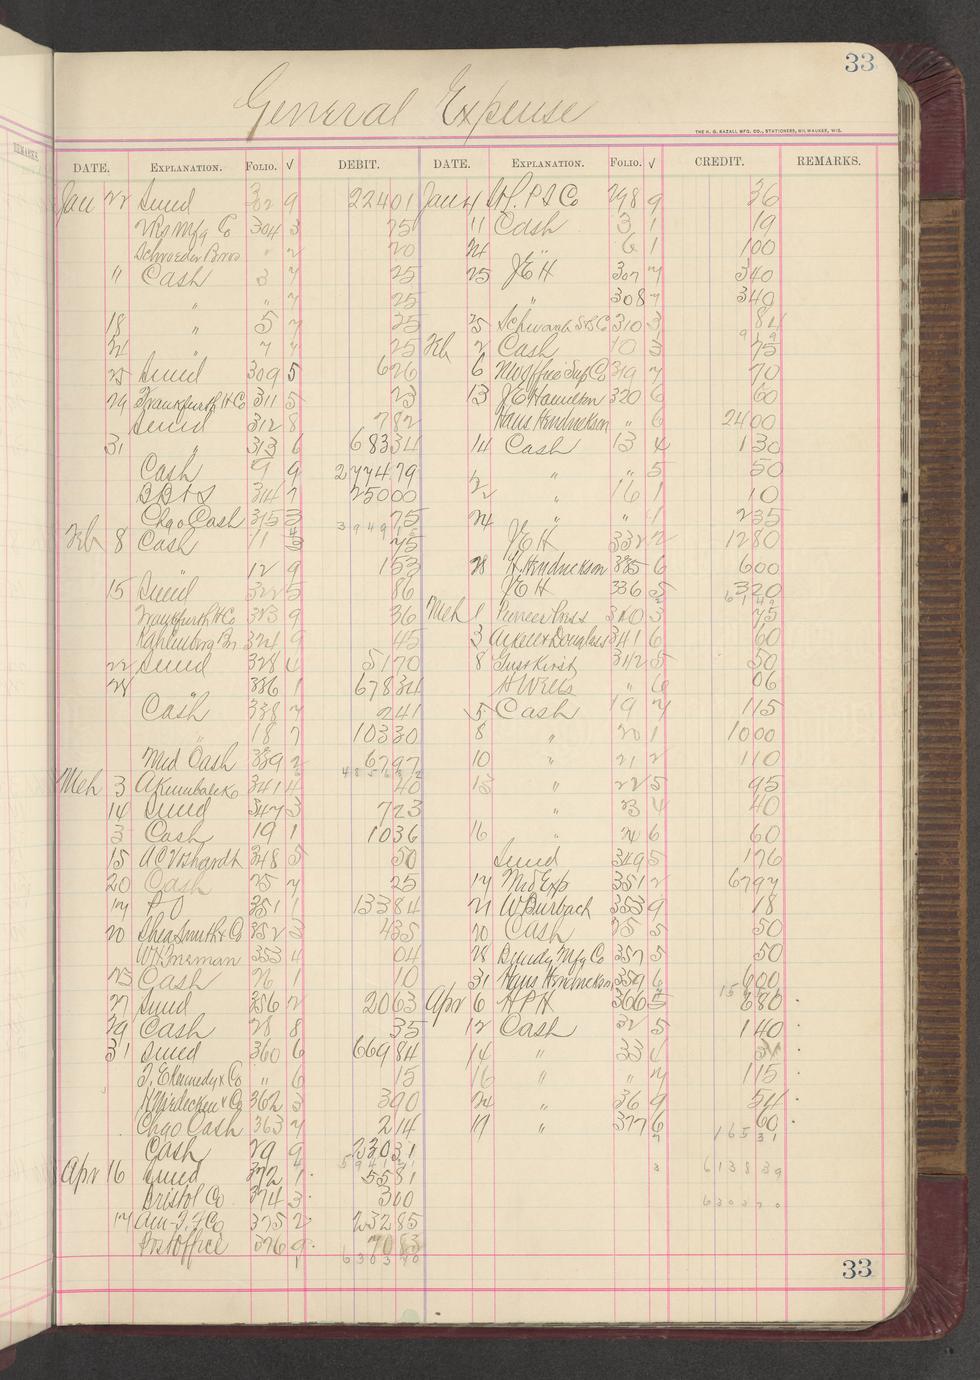 33
General Expense
THE H. G. RAZALL MFG. CO., STATIONERS, MILWAUKEE, WIS.
REMARKS.
DATE. EXPLANATION. FOLIO. √ DEBIT. DATE. EXPLANATION. FOLIO. √ CREDIT. REMARKS.
Jan 22 Sund 302 9 22401 Jan 4 H.P.S Co 298 9 36
Mfg Co 304 3 75 11 Cash 3 1 19
Schroeder Bros " 2 20 24 " 6 1 100
" Cash 3 7 25 25 JEH 307 7 340
" " 7 25 " 308 7 340
18 " 5 7 25 25 310 3 84
24 " 7 7 25 Feb 2 Cash 10 3 75
25 Sund 309 5 626 6 NW Office Sup Co 319 7 70
29 Frankfurth H Co 311 5 23 13 JE Hamilton 320 6 60
Sund 312 8 782 Hans Hendrickson " 6 2400
31 " 313 6 68334 14 Cash 13 4 130
Cash 9 9 277479 " " 5 50
BB&S 314 7 25000 22 " 16 1 10
Chgo Cash 315 3 75 24 " " 1 235
Feb 8 Cash 11 3 45 JEH 332 2 1280
12 9 153 28 H. Hendrickson 335 6 600
15 Sund 322 5 86 JEH 336 5 320
Frankfurth H Co 323 9 36 Mch 1 Pioneer Press 340 3 75
324 9 45 3 341 6 60
22 Sund 328 4 5170 8 Gust Kirst 342 5 50
28 " 336 1 67834 H Wells " 6 06
Cash 338 7 241 5 Cash 19 7 115
" 18 7 10330 8 " 20 1 1000
Md Cash 339 2 6797 10 " 21 2 110
Mch 3 341 4 40 13 " 22 5 95
14 Sund 347 3 723 " 23 4 40
3 Cash 19 1 1036 16 " 24 6 60
15 348 5 50 Sund 349 5 176
20 Cash 25 7 25 17 Md Exp 351 2 6797
17 P O 351 1 13384 21 W Burbach 353 9 18
20 Shea Smith & Co 352 3 435 20 Cash 25 5 50
353 4 04 28 Bundy Mfg Co 357 5 50
23 Cash 26 1 10 31 Hans Hendrickson 359 6 600
27 Sund 356 2 2063 Apr 6 HPH 366 5 680
29 Cash 28 8 35 12 Cash 32 5 140
31 Sund 360 6 66984 14 " 33 4
F. E Kennedy & Co " 6 15 16 " " 7 115
362 3 390 24 " 36 9 54
Chgo Cash 363 7 214 19 " 377 6 60
Cash 29 9 23031 16531
Apr 16 Sund 372 1 5581 613839
Bristol Co 374 3 300 630370
17 375 2 23285
Post Office 376 9
630370
33